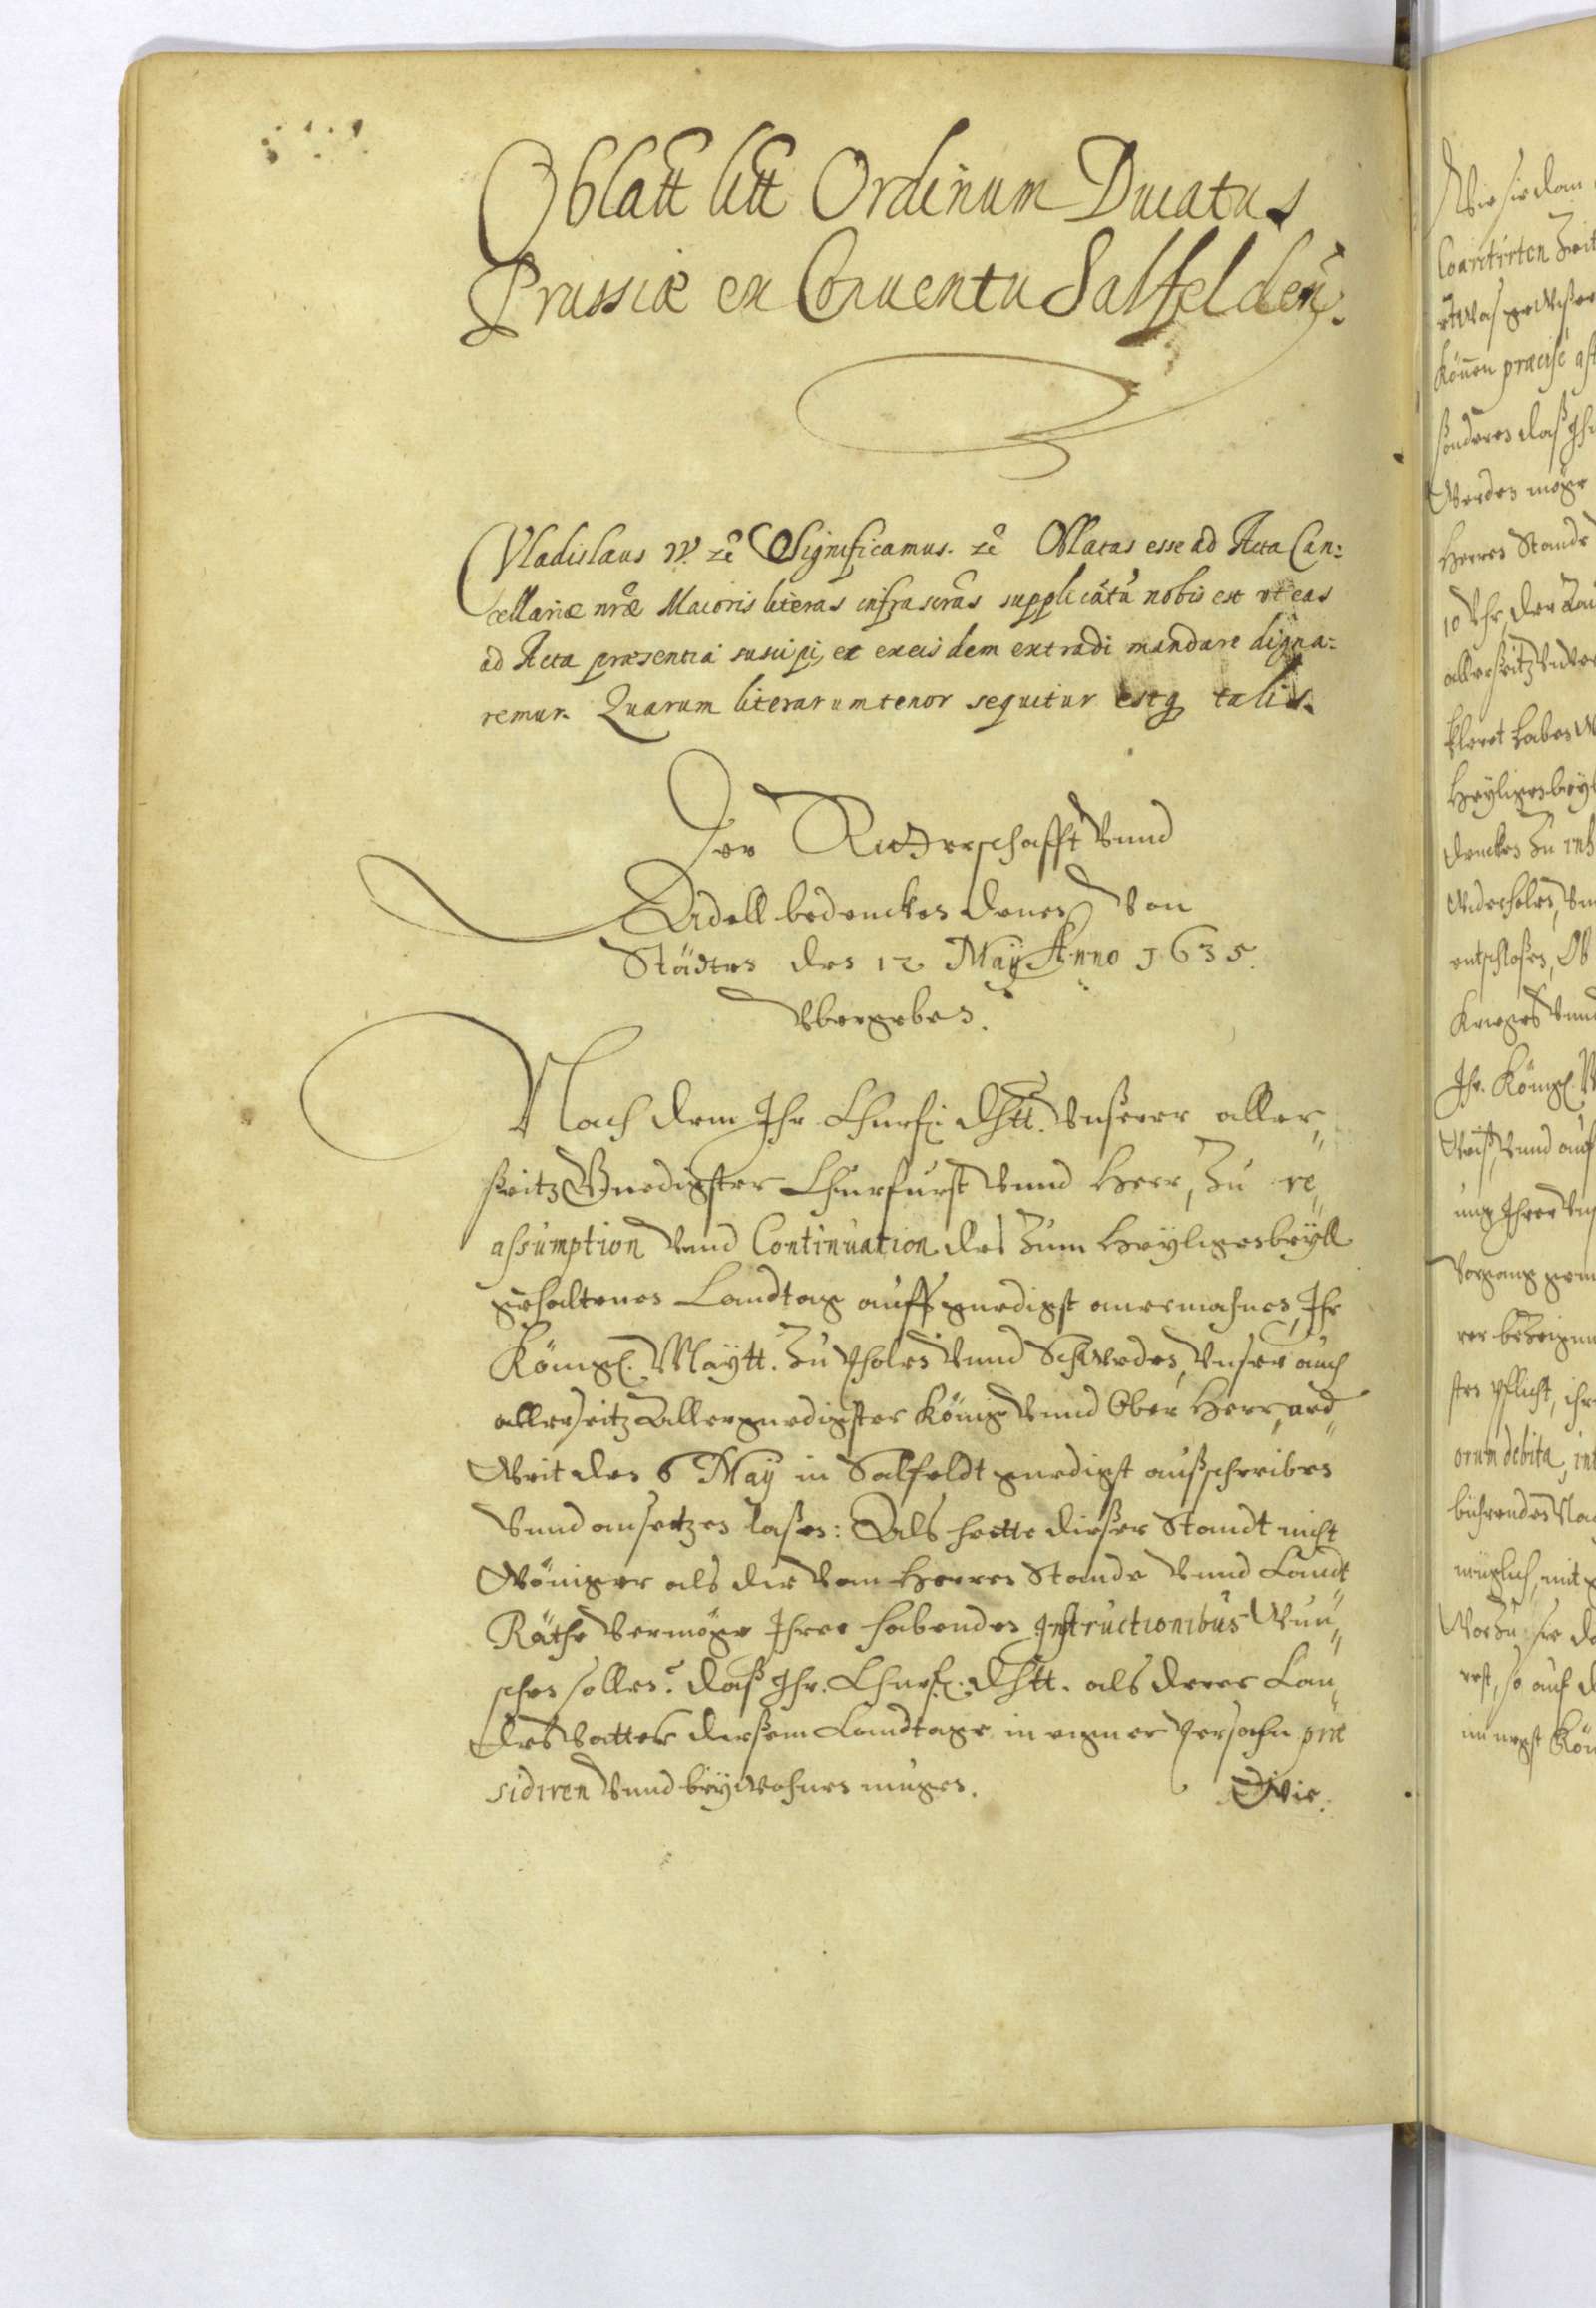 Oblatt litt Ordinum Ducatus
Prussiæ ex Conuentu Salfelden:
Vladislaus IV. etc Significamus. etc Oblatas esse ad Acta Can:
cellariæ nræ Maioris literas infra scras supplicatũ nobis est vt eas
ad Acta præsentia suscipi, et ex eisdem extradi mandare digna:
remur. Quarum literarum tenor sequitur estq talis.
Der Ritterschafft Vnnd
Adell bedencken denen Von
Städten den 12 Maÿ Anno 1635.
Vbergeben.
Nach dem Ihr Churf: dhtt. Vnserer aller„
seitz Gnedigster Churfurst Vnnd Herr, Zu re„
assumption Vnnd Continuation des Zum Heÿligenbeÿll
gehaltenen Landtag auffs gnedigst anermahnen, Ihr
Königl. Maÿtt. Zu Pholen Vnnd Schweden, Vnser auch
allerseitz Allergnedigster König Vnnd Ober Herr,
den 6 Maÿ in Salfeldt gnedigst außschreiben
Vnnd ansetzen laßen: Als hette dießer Standt nicht
Wöniger als die Vom Herren Stande Vnnd Landt
Räthe Vermöge Ihrer habenden Instructionibus Wün„
schen sollen. daß Ihr. Churf: dhtt. als derer Lan„
des Vatter diesem Landtage in eigner Persohn præ
sidiren Vnnd beÿwohnen mügen.
Wie
Wie sie dan
Coarctirten Zeit
etwas gewißes
können præcisè
sonderen daß Ihr
Werden möge
Herren Stande
10 Vhr, der
allerseitz
kleret haben
Heÿligenbeÿl
dencken Zu
Widerholen,
entschloßen, Ob
Krieges Vnnd
Ihr. Königl. M
Vnnd auf
ung Ihrer
Vorgang
bezeigen
sten Pflicht, ihr
orum debita, int
bührenden Nac
müglich, mit
Worzu sie
so auf